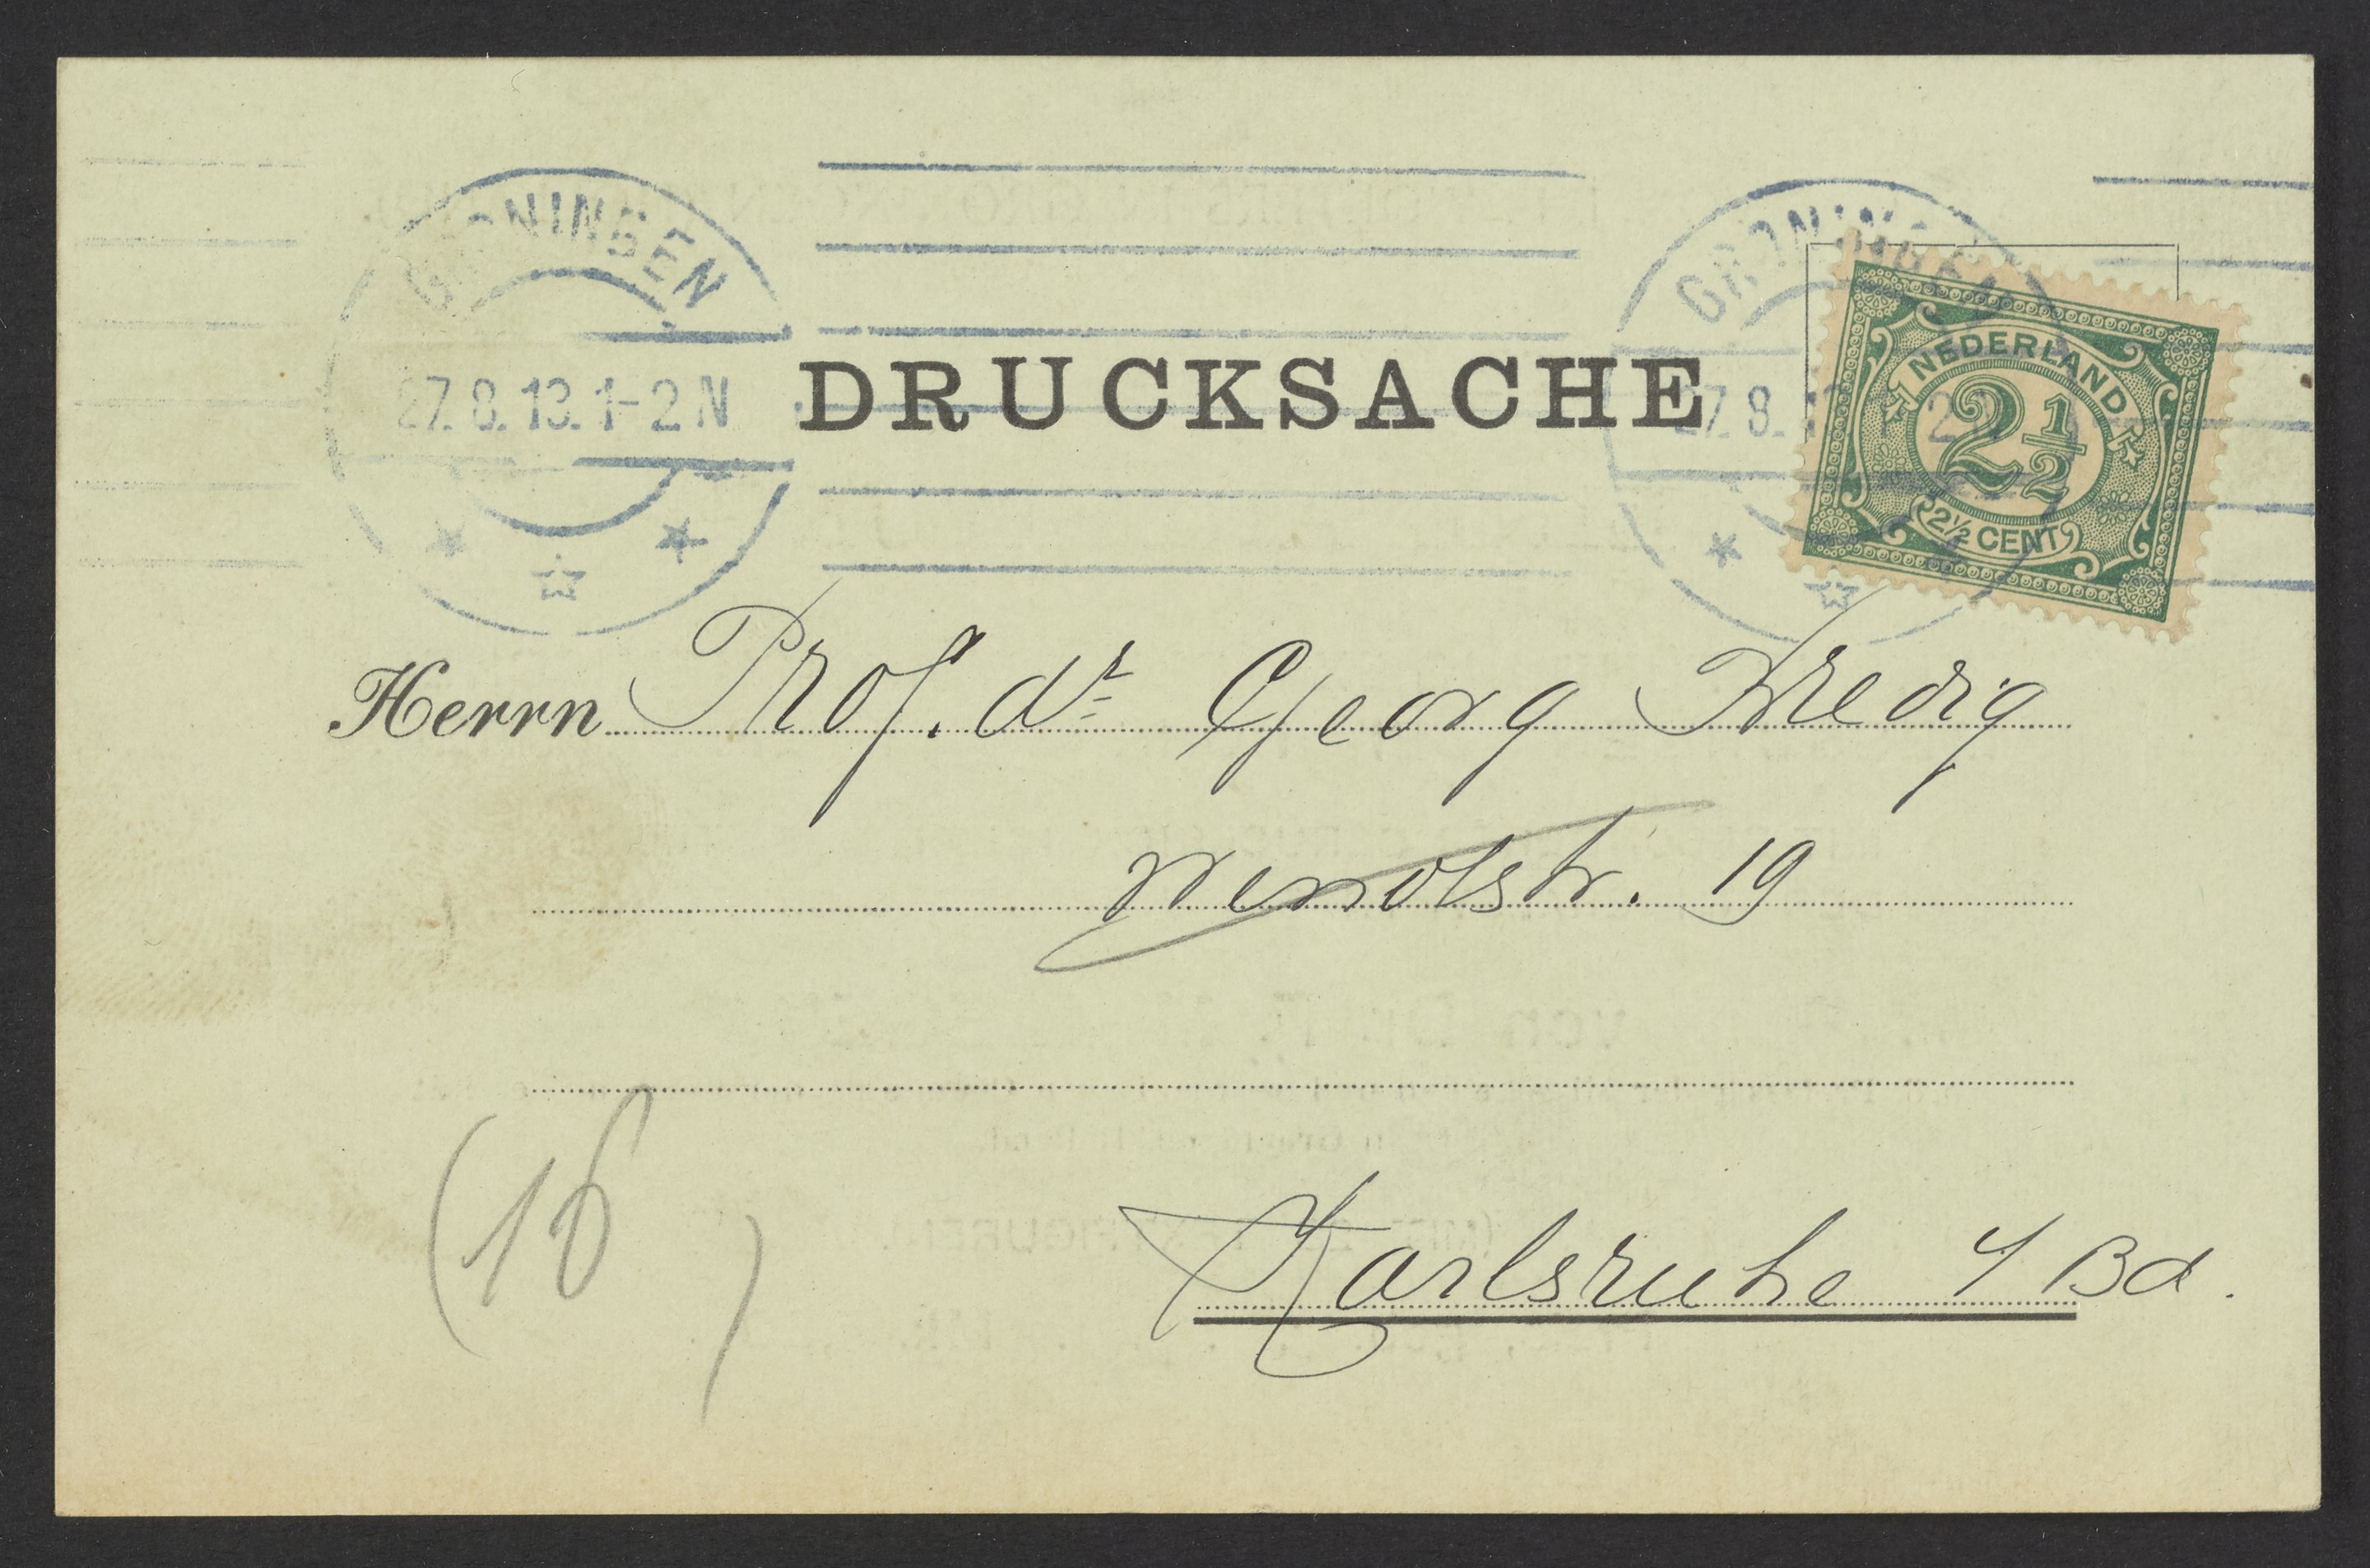 GRONINGEN
27.8.13.1-2N
DRUCKSACHE
GRONINGEN
27.8.1 2N
NEDERLAND
2 1/2
2½ CENT
Herrn Prof. dr Georg Bredig
Wendtstr. 19
(16)
Karlsruhe i/Bd.